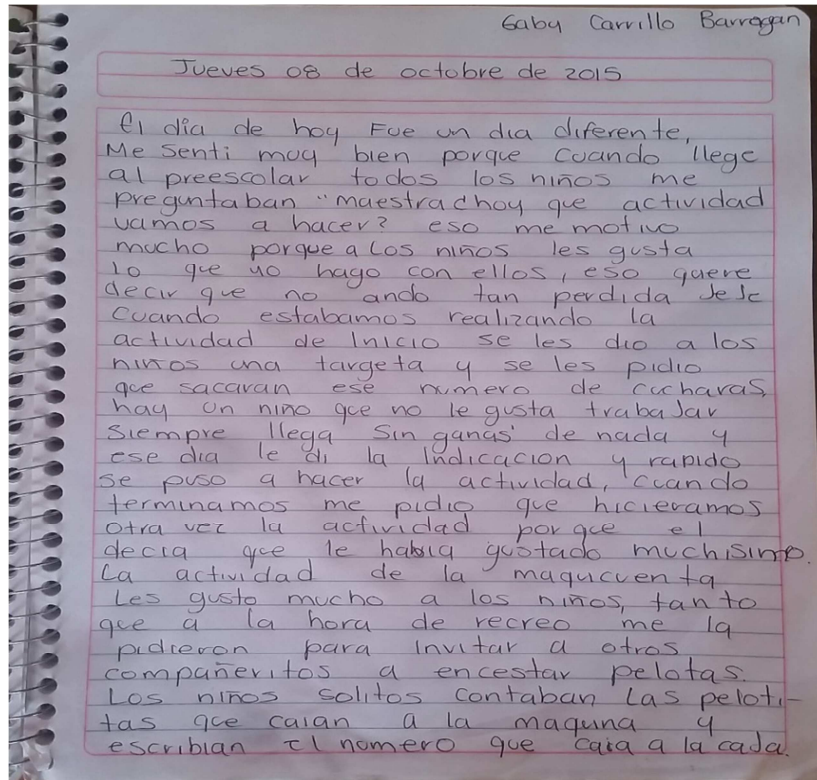 Gaby Carrillo Barragan
Jueves 08 de octubre de 2015
El día de hoy Fue un dia diferente,
Me senti muy bien porque cuando llege
al preescolar todos los niños me
preguntaban "maestra ¿hoy que actividad
vamos a hacer? eso me motivo
mucho porque a los niños les gusta
lo que yo hago con ellos, eso quere
decir que no ando tan perdida JeJe
Cuando estabamos realizando la
actividad de Inicio se les dio a los
niños una targeta y se les pidio
que sacaran ese numero de cucharas,
hay un niño que no le gusta trabaJar
siempre llega sin ganas de nada y
ese dia le di la Indicacion y rapido
se puso a hacer la actividad, cuando
terminamos me pidio que hicieramos
otra vez la actividad por que el
decia que le habia gustado muchisimo.
La actividad de la maqucuenta
Les gusto mucho a los niños, tanto
que a la hora de recreo me la
pidieron para Invitar a otros
compañeritos a encestar pelotas.
Los niños solitos contaban Las peloti-
tas que caian a la maquna y
escribian El nomero que caia a la caJa.